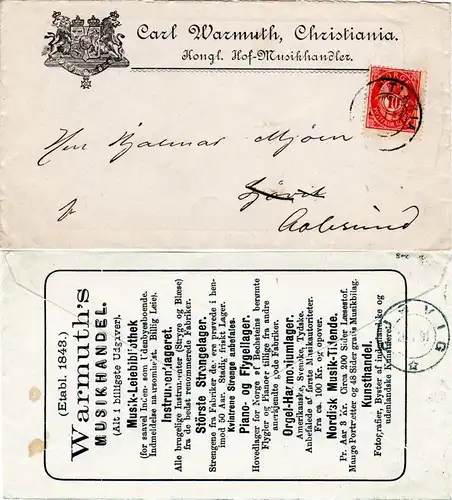 Carl Warmuth, Christiania.
Kongl. Hof-Musikhandler.
NORGE
10
Herr Hjalmar Mjöen
Gjövik
Aalesund
(Etabl. 1843.)
Warmuth's
MUSIKHANDEL.
(Alt i billigste Udgaver).
Musik-Leiebibliothek
(for saavel Inden- som Udenbyesboende.
Indmeldelse naarsomhelst. Billig Leie).
Instrumentlageret.
Alle brugelige Instrumenter (Stryge og Blæse)
fra de bedst renommerede Fabriker.
Største Strengelager.
Strengene fra Fabriker der ere prøvede i hen-
imod 50 Aar. Stadig friskt Lager.
Kvintrene Strenge anbefales.
Piano- og Flygellager.
Hovedlager for Norge af Bechsteins berømte
Flygler og Pianoer tillige fra andre
anerkjendte gode Fabriker.
Orgel-Harmoniumlager.
Amerikanske, Svenske, Tydske.
Anbefalede af første Musikautoriteter.
Fra ca. 100 Kr. og opover.
Nordisk Musik-Tidende.
Pr. Aar 3 Kr. Circa 200 Sider Læsestof.
Mange Portrætter og 48 Sider gratis Musikbilag.
Kunsthandel.
Fotografier, Byster af indenlandske og
udenlandske Kunstnere.
VIG